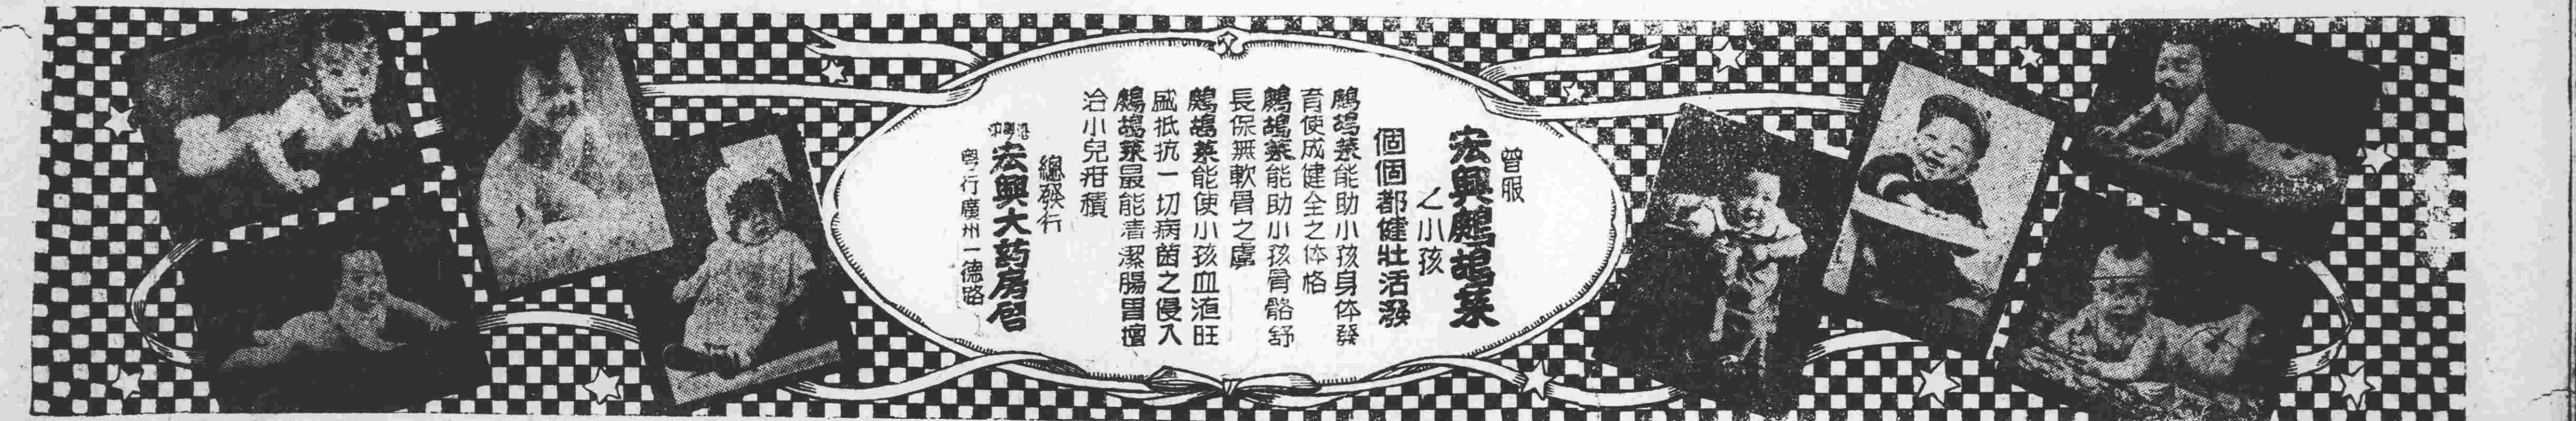 曾服
宏興鷓鴣菜
之小孩
個個都健壯活潑
鷓鴣菜能助小孩身体發
育使成健全之体格
鷓鴣菜能助小孩骨骼舒
長保無軟骨之虞
鷓鴣菜能使小孩血液旺
盛抵抗一切病菌之侵入
鷓鴣菜最能清潔腸胃擅
治小兒疳積
總發行
宏興大药房啓
粤行廣州一德路